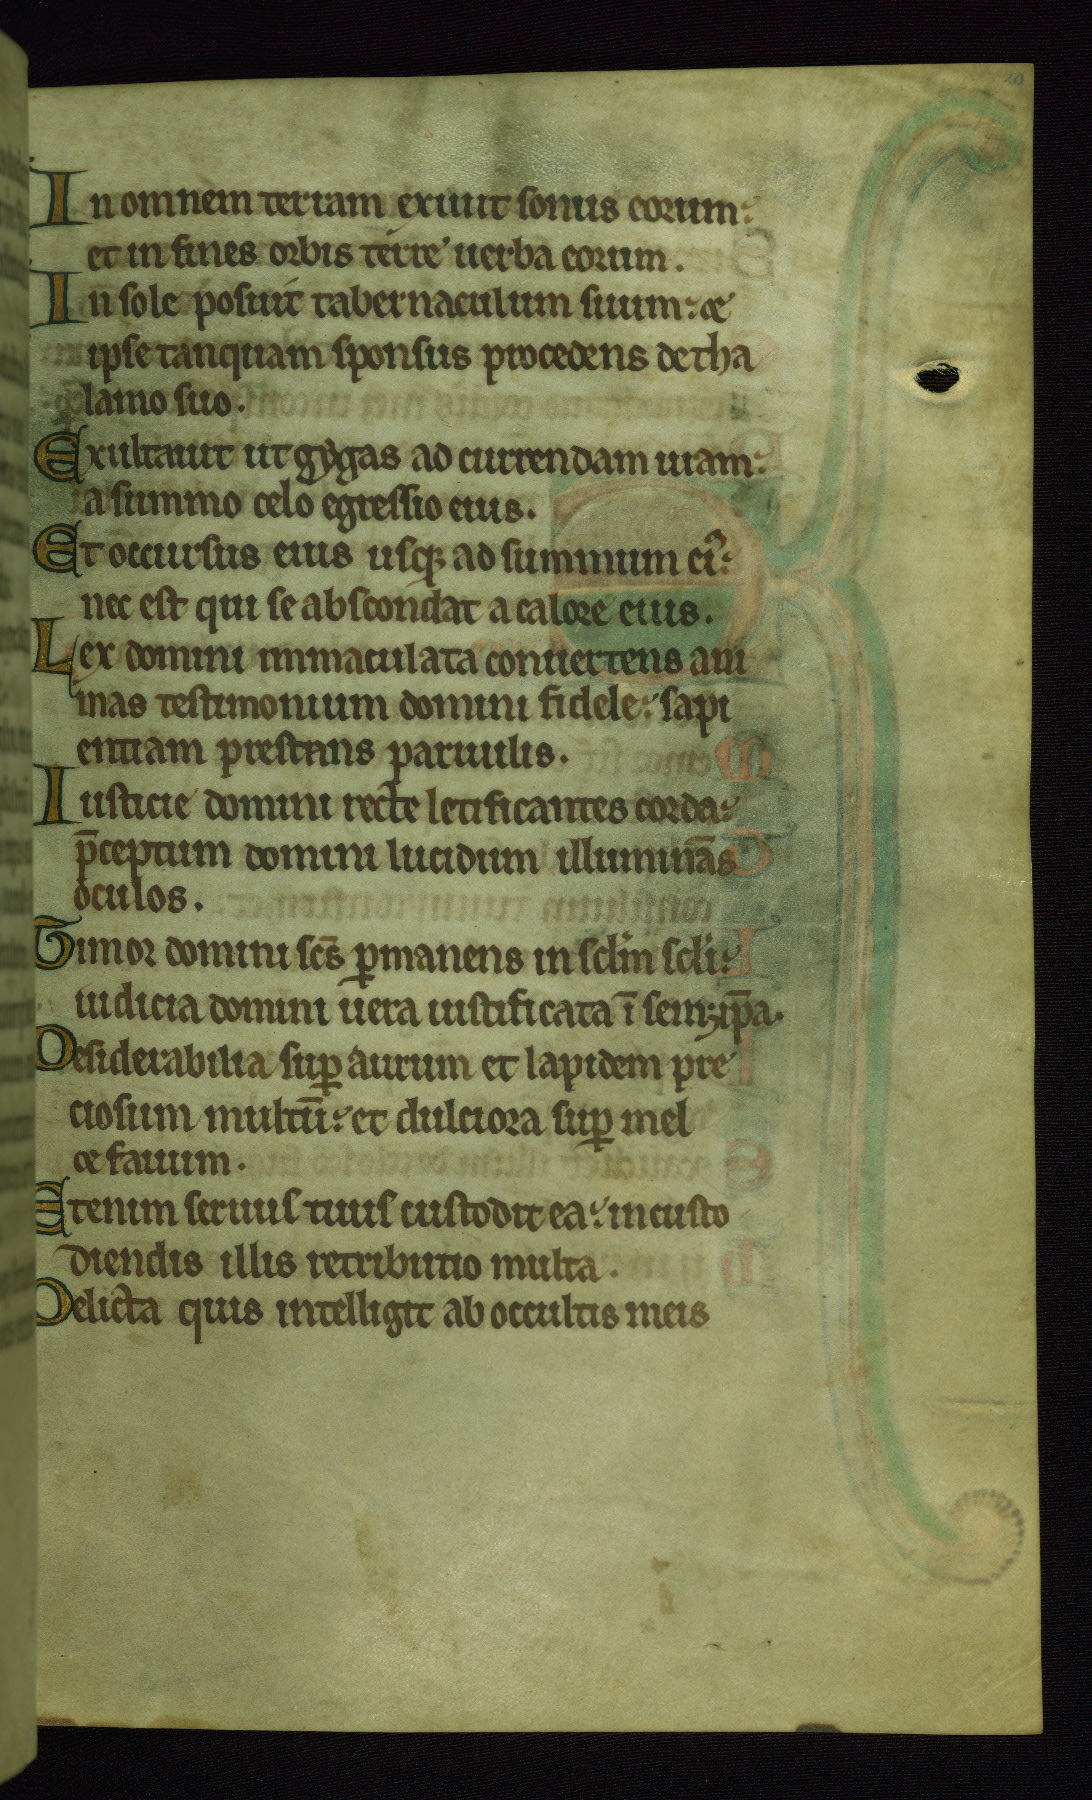 10
In omnem terram exiuit sonus eorum:
et in fines orbis terre uerba eorum.
In sole posuit tabernaculum suum: &
ipse tanquam sponsus procedens de tha
lamo suo.
Exultauit ut gygas ad currendam uiam:
a summo celo egressio eius.
Et occursus eius usq; ad summum ei᷒:
nec est qui se abscondat a calore eius.
Lex domini immaculata conuertens ani
mas testimonium domini fidele: sapi
entiam prestans paruulis.
Iusticie domini recte letificantes corda:
p̄ceptum domini lucidum illuminās
oculos.
Timor domini scs̄ ꝑmanens in sclm̄ sclī:
iudicia domini uera iustificata ī semꝫipā.
Desiderabilia suꝑ aurum et lapidem pre
ciosum multū: et dulciora suꝑ mel
& fauum.
Etenim seruus tuus custodit ea: in custo
diendis illis retributio multa.
Delicta quis intelligit ab occultis meis